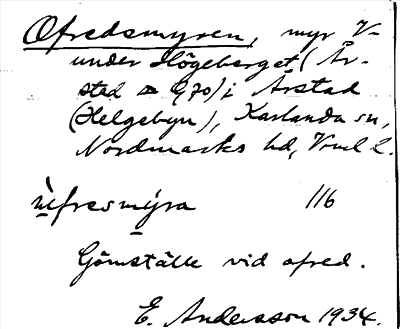 Ofredsmyren, myr V-
under Högeberget (År-
stad 970) i Årstad
(Helgebyn), Karlanda sn,
Nordmarks hd, Vrml l.
ùfresmyra 116
Gömställe vid ofred.
E. Andersson 1934.